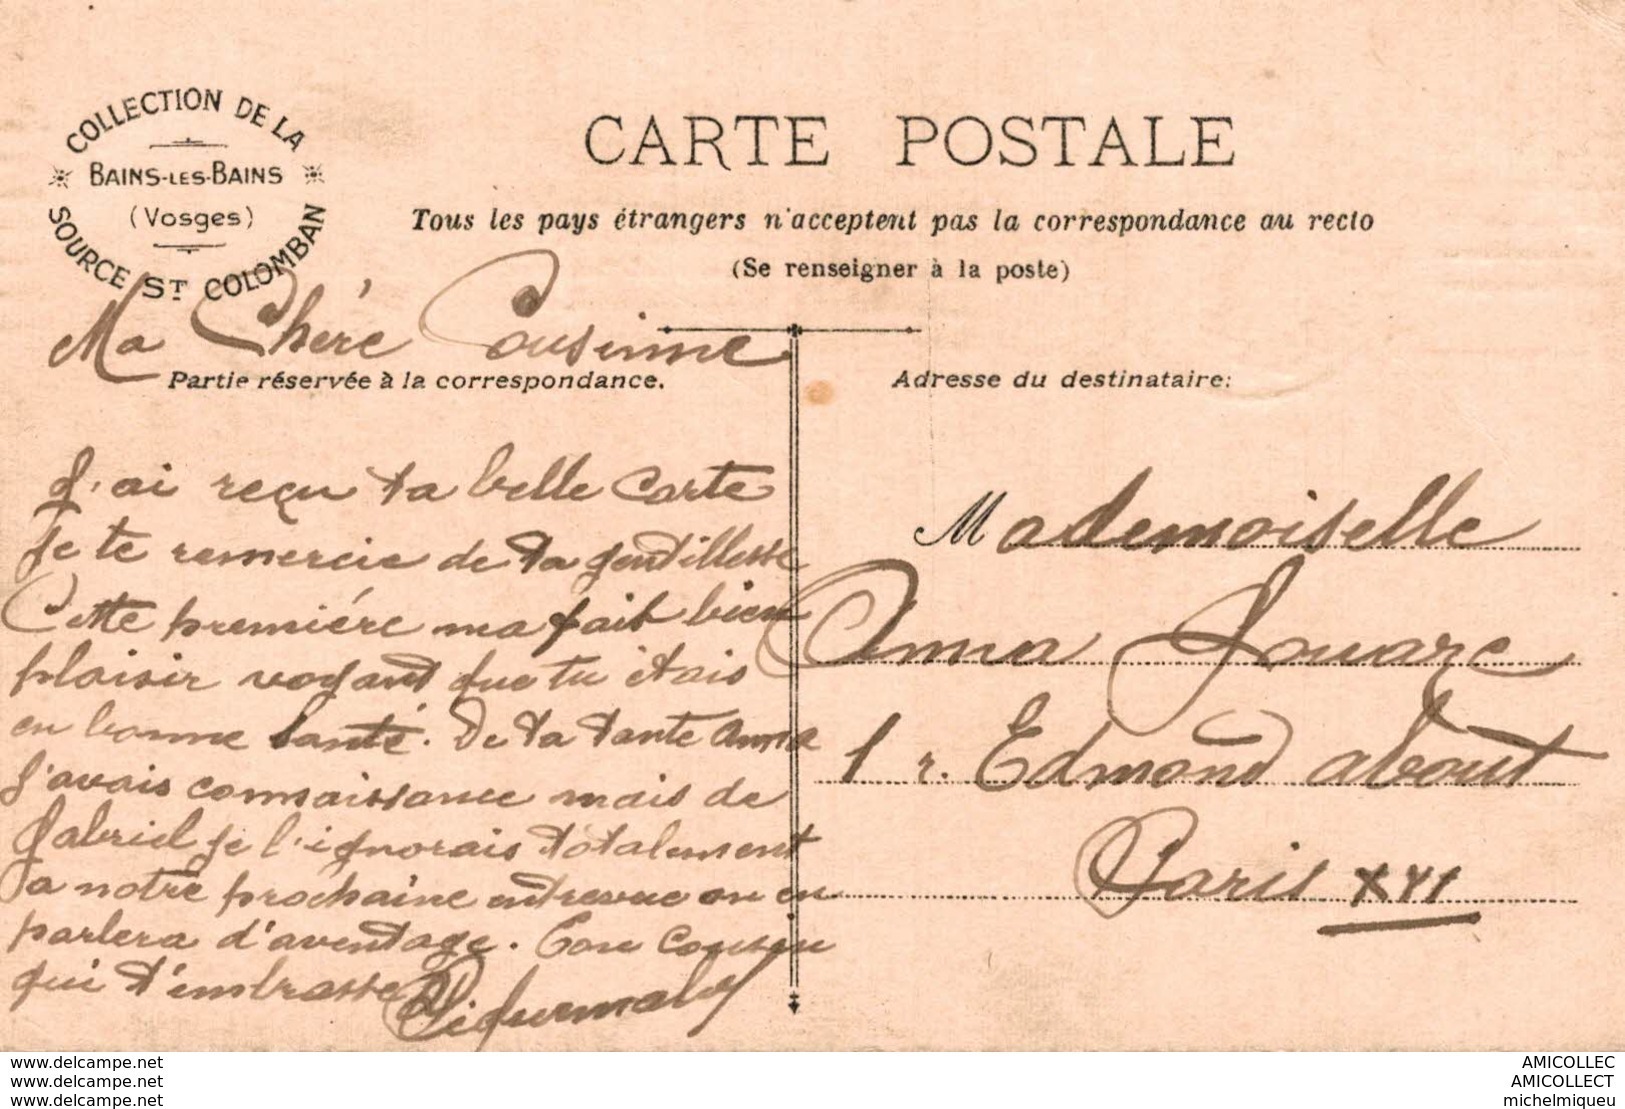 COLLECTION DE LA
BAINS-LES-BAINS
(Vosges)
SOURCE ST COLOMBAN
CARTE POSTALE
Tous les pays étrangers n'acceptent pas la correspondance au recto
(Se renseigner à la poste)
Ma Chéré Cousinne
Partie réservée à la correspondance.
J'ai reçu ta belle carte
Je te remercie de ta gentillesse
Cette premiére ma fait bien
plaisir voyant que tu étais
en bonne santé. De ta tante Anna
J'avais connaissance mais de
Gabriel je l'ignorais totalement
a notre prochaine entrevue on en
parlera d'aventage. Ton cousin
qui t'embrasse
Adresse du destinataire:
Mademoiselle
Anna Jouare
1 r. Edmond about
Paris XVI
www.delcampe.net
www.delcampe.net
www.delcampe.net
AMICOLLEC
AMICOLLECT
michelmiqueu